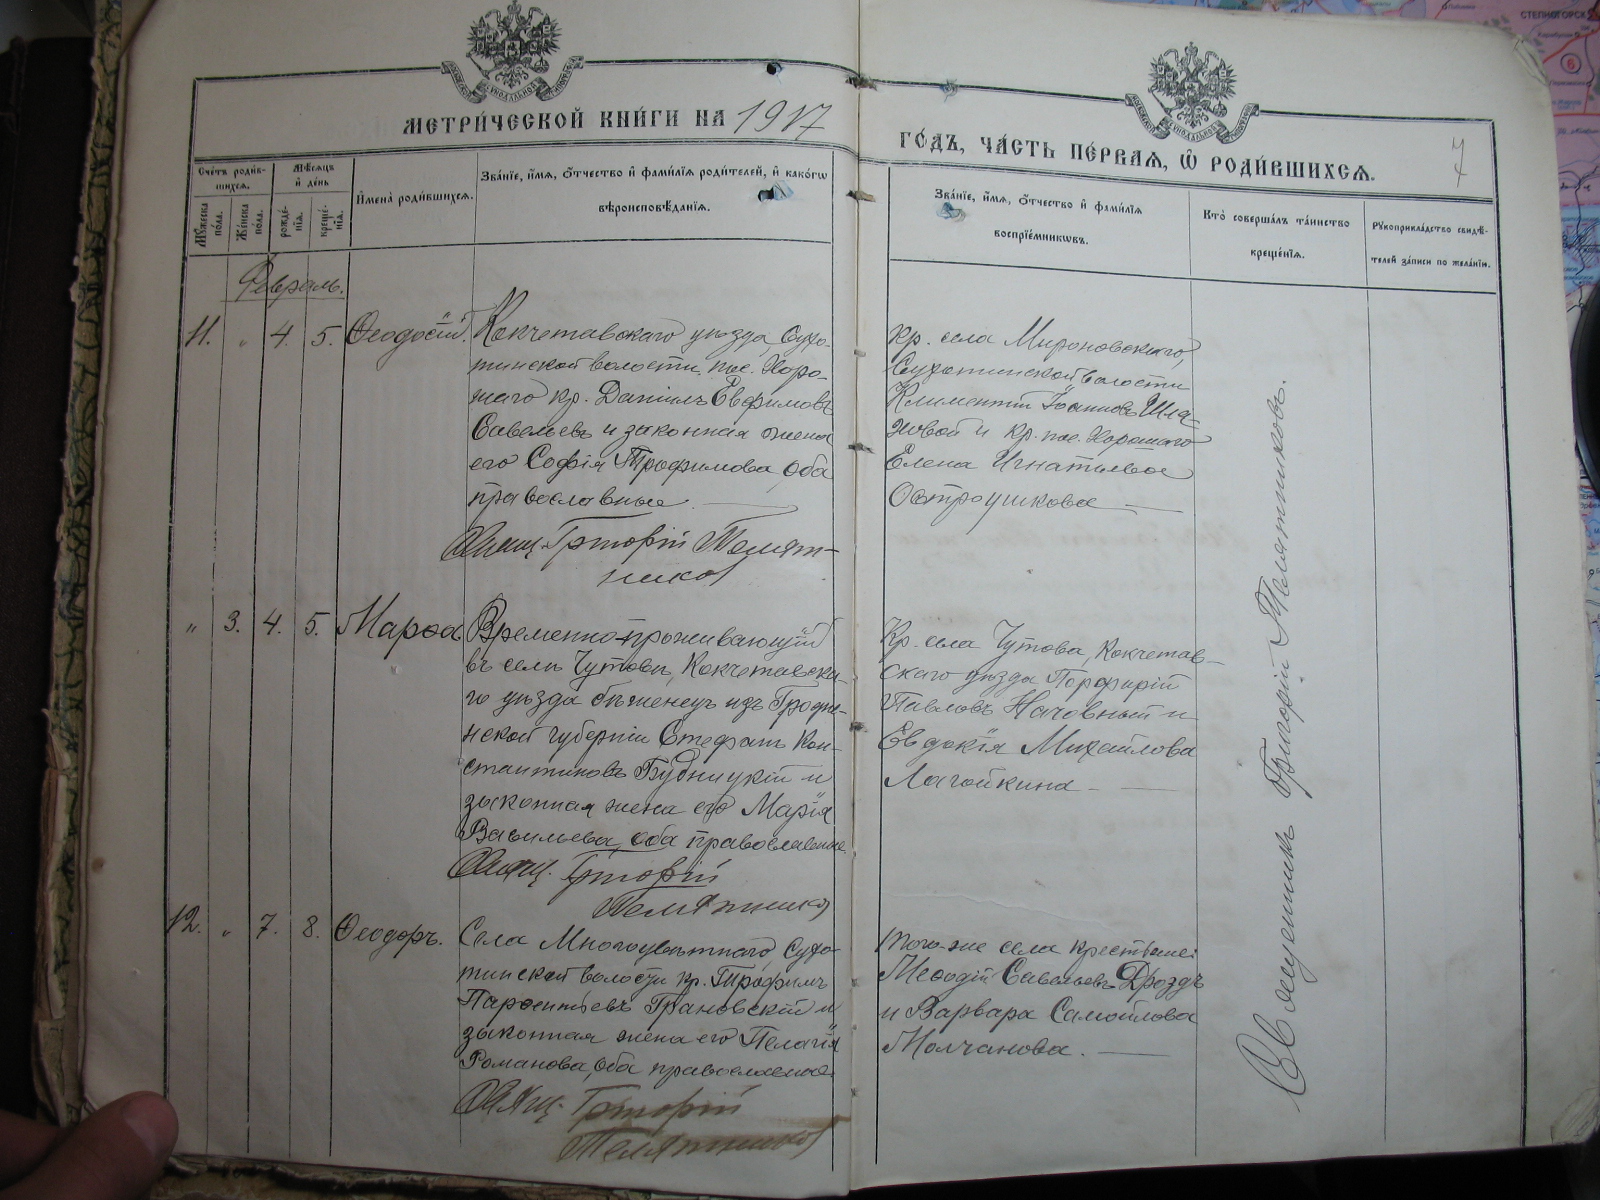 МЕТРИ́ЧЕСКОЙ КНИ́ГИ НА 1917
ГО́ДЪ, ЧА́СТЬ ПЕ́РВАЯ, Ѡ҆ РОДИ́ВШИХСЯ.
7
Сче́тъ роди́в-
шихся.
Мѣ́сяцъ
и҆ де́нь
И҆мена̀ роди́вшихся.
Зва́нїе, и҆́мя, ѻ҆́тчество и҆ фами́лїя роди́телей, и҆ како́гѡ
вѣроисповѣ́данїя.
Му́жеска
по́ла.
Же́нска
по́ла.
рожде́-
нїя.
креще́-
нїя.
Зва́нїе, и҆́мя, ѻ҆́тчество и҆ фами́лїя
воспрїе́мникѡвъ.
Кто̀ соверша́лъ та́инство
креще́нїя.
Рукоприкла́дство свидѣ́-
телей за́писи по жела́нїю.
Февраль.
11. „ 4. 5. Ѳеодосій.
Кокчетавскаго уѣзда, Сухо-
тинской волости, пос. Хоро-
шаго кр. Даніилъ Евфимовъ
Савельевъ и законная жена
его Софія Трофимова, оба
православные
Свящ. Григорій Телят-
никовъ
кр. села Мироновскаго,
Сухотинской волости
Климентій Іоанновъ Шла-
живой и кр. пос. Хорошаго
Елена Игнатьева
Остроушкова
„ 3. 4. 5. Марѳа
Временно-проживающій
въ селѣ Чутовѣ, Кокчетавска-
го уѣзда бѣженецъ изъ Гродне-
нской губерніи Стефанъ Кон-
стантиновъ Будницкій и
законная жена его Марія
Васильева, оба православные.
Свящ. Григорій
Телятниковъ
Кр. села Чутова, Кокчетав-
скаго уѣзда Порфирій
Павловъ Наговный и
Евдокія Михайлова
Лагойкина
12. „ 7. 8. Ѳеодоръ.
Села Многоцвѣтнаго, Сухо-
тинской волости кр. Трофимъ
Парѳентьевъ Грановскій и
законная жена его Пелагія
Романова, оба православные.
Свящ. Григорій
Телятниковъ
того-же села крестьяне:
Меѳодій Савельевъ Дроздъ
и Варвара Самойлова
Молчанова.
Священникъ Григорій Телятниковъ.
СТЕПНОГОРСК